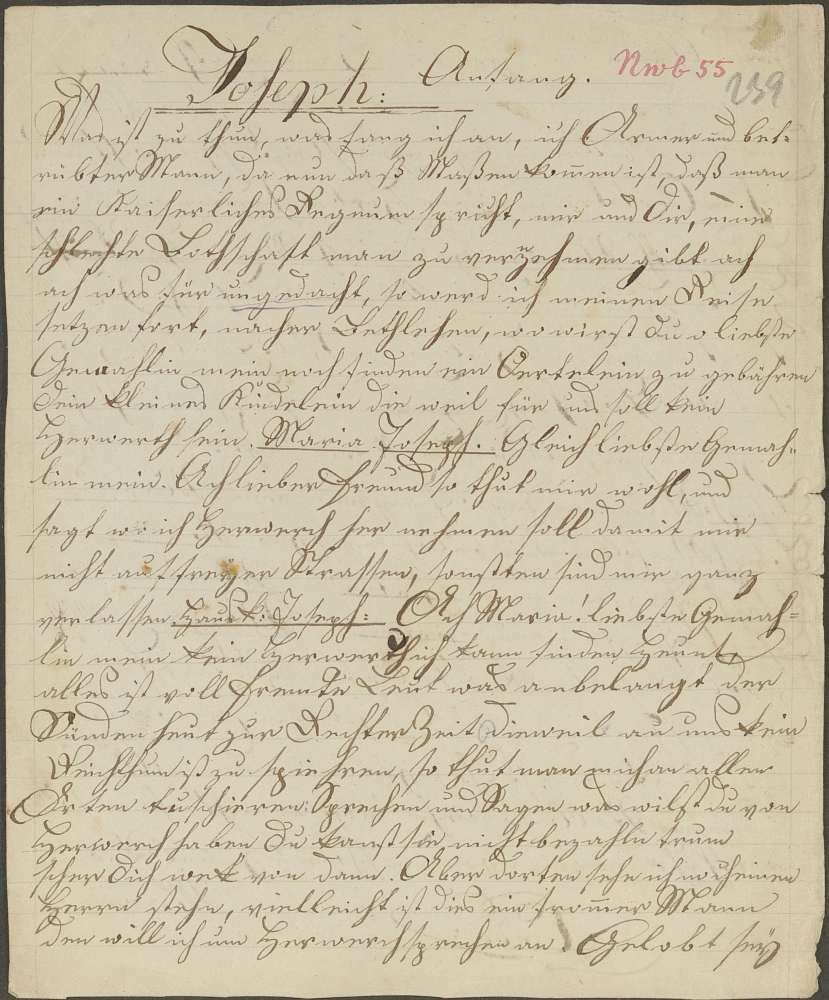 Joseph: Anfang. Nwb 55
239
Was ist zu thun, was fang ich an, ich Armer und bet-
rübter Mann, da nun daß Maßen kom̅en ist, daß man
ein Kaiserliches Regnum spricht, mir und Dir, eine
schlechte Bothschaft man zu vernehmen gibt ach
ach was für ungedacht, so werd ich meinen Reise
setzen fort, nacher Bethlehen, wo wirst Du o liebste
Gemahlin mein noch finden ein Oertelein zu gebähren
Dein kleines Kindelein die weil für uns soll kein
Herwerch sein. Maria: Joseph. Gleich liebste Gemah-
lin mein. Ach lieber Freund so thut mir wohl, und
sagt wo ich Herwerch her nehmen soll damit mir
nicht auf freyer Strassen, sonsten sind mir ganz
verlassen Hausk: Joseph: Ach Maria! liebste Gemah-
lin mein kein Herwerch ich kann finden Heunt,
alles ist voll Fremte Leut was anbelangt der
Sünden heut zur Rechter Zeit Dieweil an uns kein
Reichthum ist zu spiehren, so thut man mich an allen
Orten tuschieren: Sprechen und Sagen was wilst du von
Herwerch haben Du kanst sie nicht bezahln trum
scher Dich wek von dann. Aber dorten sehe ich noch einen
Herrn stehn, vielleicht ist dies ein from̅er Mann
den will ich um Herwerch sprechen an. Gelobt seÿ